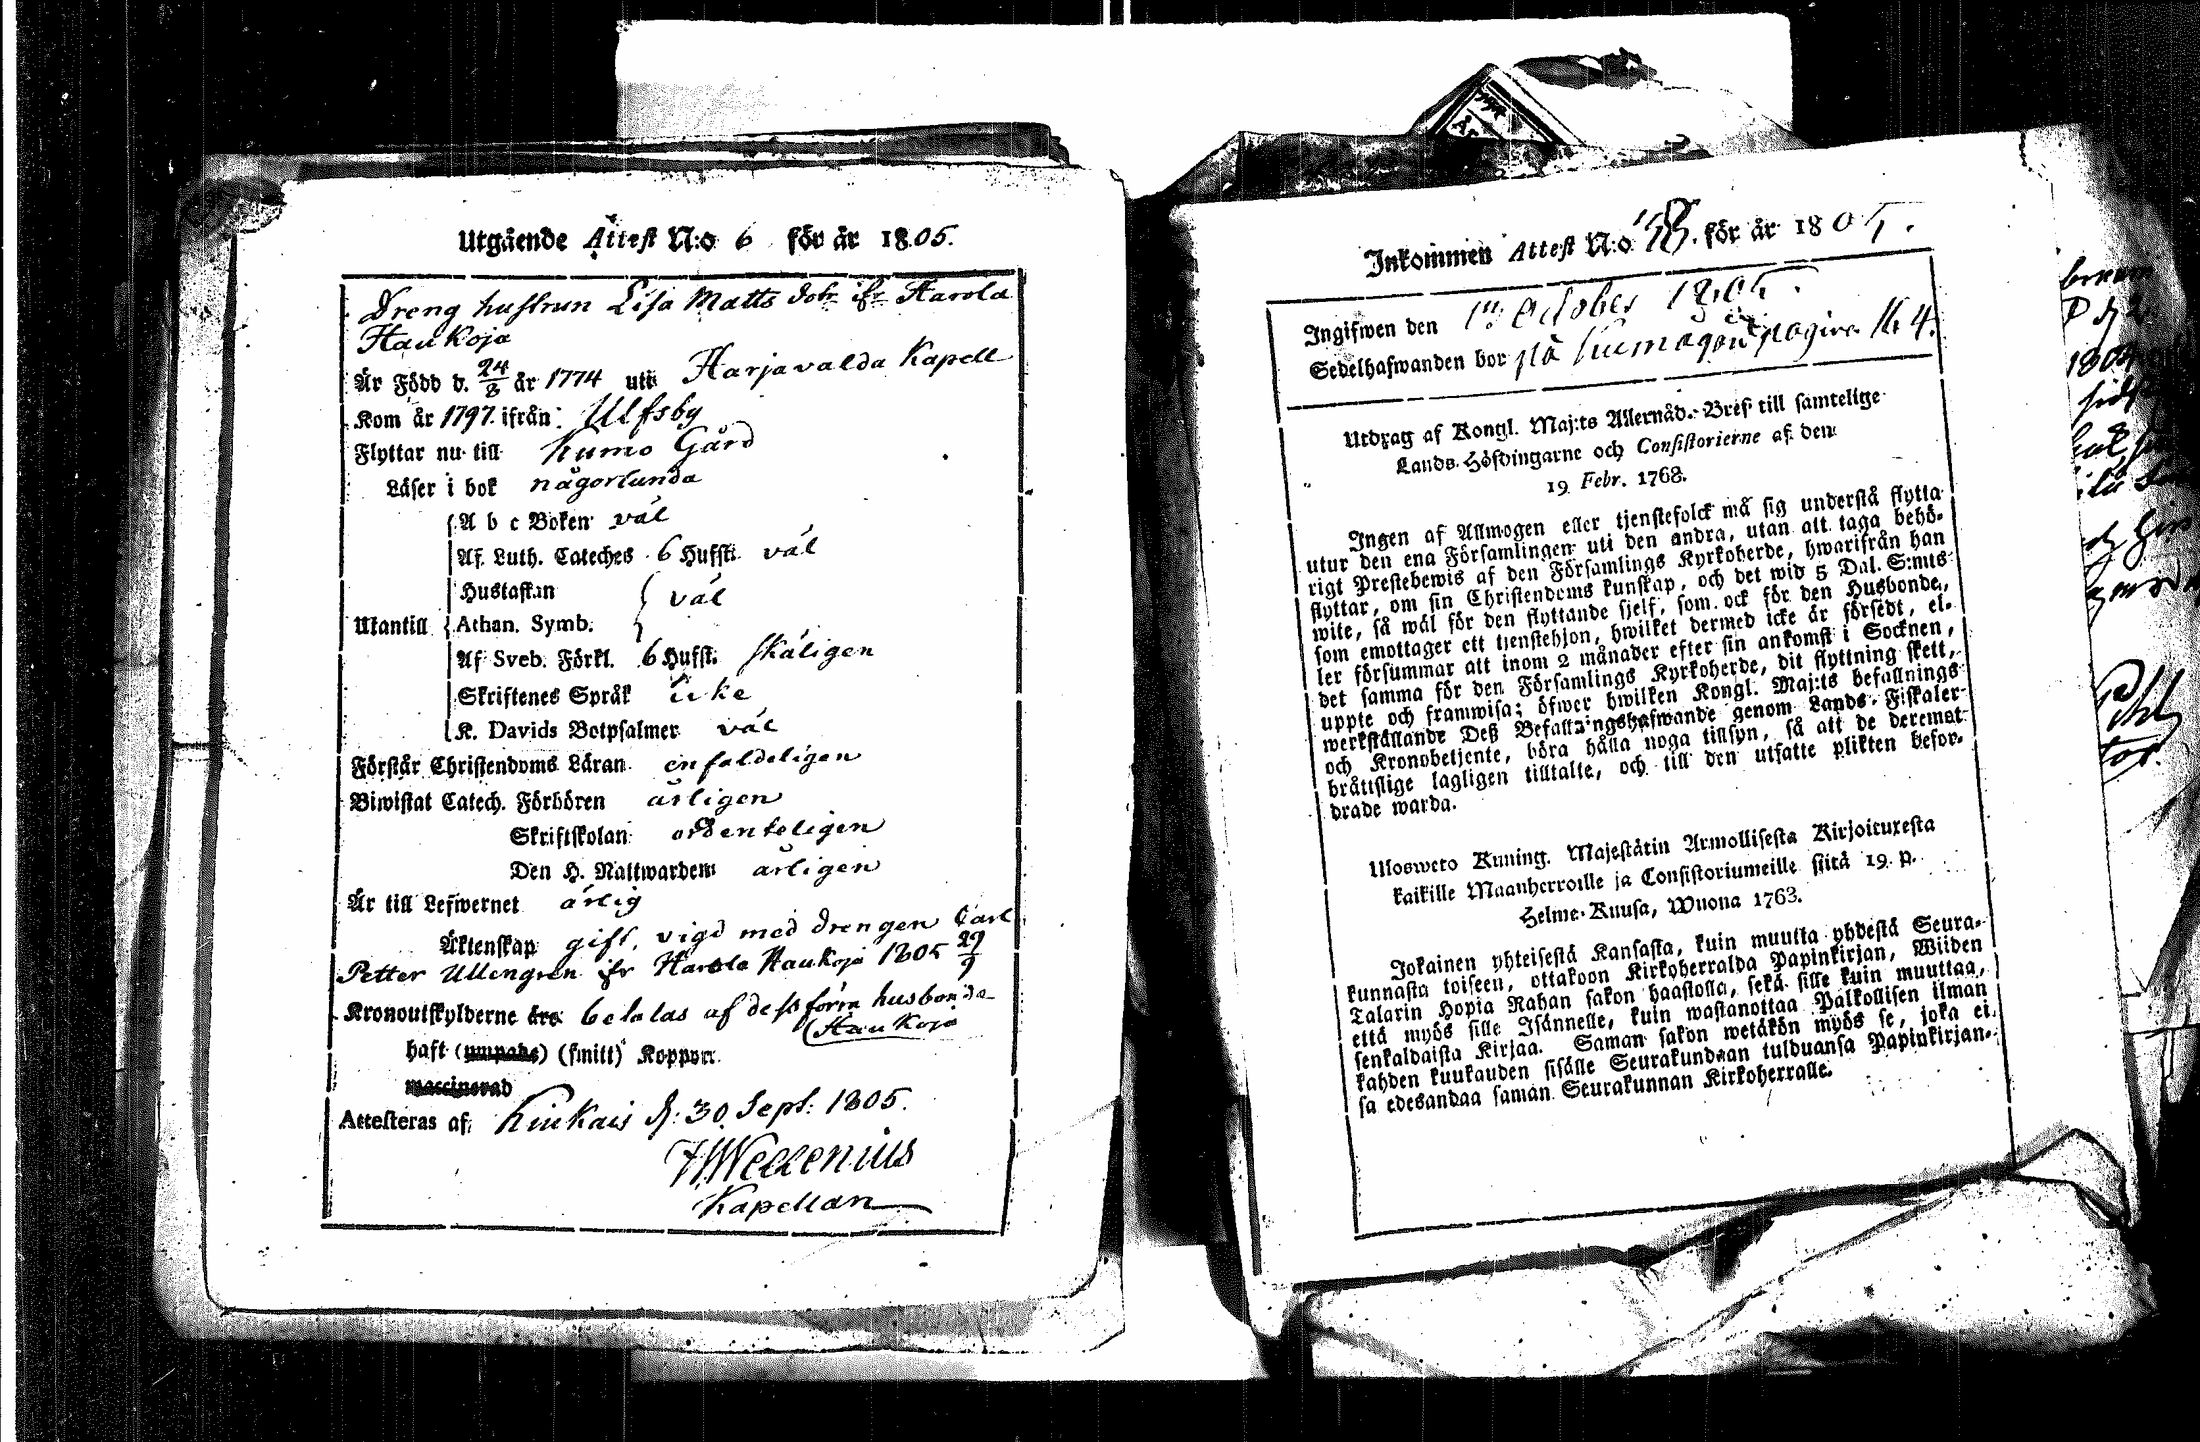 Utgående Attest N:o 6 för år 1805.
Dreng hustrun Lisa Matts dotr ifr Harola
Haukoja
Är Född d. 24/8 år 1774 uti Harjavalda Kapell
Kom år 1797. ifrån: Ulfsby
Flyttar nu till Kumo Gård
Läser i bok någorlunda
A b c Boken väl
Af Luth. Cateches 6 Hufst. väl
Hustaflan
väl
Utantill Athan. Symb.
Af Sveb. Förkl. 6 Hufst. skäligen
Skriftenes Språk icke
K. Davids Botpsalmer väl
Förstår Christendoms Läran enfaldeligen
Biwistat Catech. Förhören årligen
Skriftskolan ordenteligen
Den H. Nattwarden årligen
Är till Lefwernet ärlig
Äktenskap gift, vigd med drengen Carl
Petter Ullengren ifr Harola Haukoja 1805 29/9
Kronoutskylderne äro betalas af dess förra husbonde
(Haukoja
haft (umpade) (smitt) Koppor.
waccinerad
Attesteras af Kiukais d: 30 Sept: 1805.
Wellenius
Kapellan
Inkommen Attest N:o för år 1805.
Ingifwen den 1sta October 1805.
Sedelhafwanden bor på Kumogård pagina № 4.
Utdrag af Kongl. Maj:ts Allernåd. Bref till samtelige
Lands-Höfdingarne och Consistorierne af den
19 Febr. 1768.
Ingen af Allmogen eller tjenstefolck må sig understå flytta
utur den ena Församlingen uti den andra, utan att taga behö-
rigt Prestebewis af den Församlings Kyrkoherde, hwarifrån han
flyttar, om sin Christendoms kunskap, och det wid 5 Dal. S:mts
wite, så wäl för den flyttande sjelf, som ock för den Husbonde,
som emottager ett tjenstehjon, hwilket dermed icke är försedt, el-
ler försummar att inom 2 månader efter sin ankomst i Socknen,
det samma för den Församlings Kyrkoherde, dit flyttning skett,
uppte och framwisa; öfwer hwilken Kongl. Maj:ts befallnings
werkställande Deß Befallningshafwande genom Lands-Fiskaler
och Kronobetjente, böra hålla noga tillsyn, så att de deremot
bråttslige lagligen tilltalte, och till den utsatte plikten befor-
drade warda.
Ulosweto Kuning. Majestätin Armollisesta Kirjoituxesta
kaikille Maanherroille ja Consistoriumeille siitä 19. p.
Helme-Kuusa, Wuona 1763.
Jokainen yhteisestä Kansasta, kuin muutta yhdestä Seura-
kunnasta toiseen, ottakoon Kirkoherralda Papinkirjan, Wiiden
Talarin Hopia Rahan sakon haastolla, sekä sille kuin muuttaa,
että myös sille Isännelle, kuin wastanottaa Palkollisen ilman
senkaldaista Kirjaa. Saman sakon wetäkön myös se, joka ei
kahden kuukauden sisälle Seurakundaan tulduansa Papinkirjan-
sa edesandaa saman Seurakunnan Kirkoherralle.